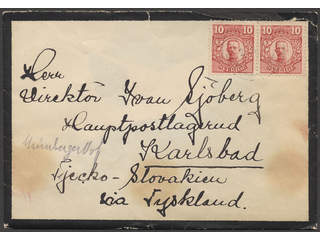 10 10
SVERIGE SVERIGE
Herr
Direktör Ivan Sjöberg
Hauptpostlagernd
Karlsbad
Nürnberger Hof
Tjecko-Slovakien
via Tyskland.